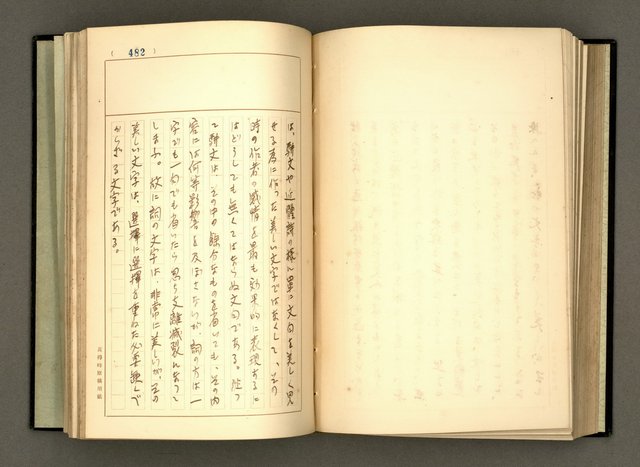 (482)
は、駢文や近體詩の様に單に文句を美しく見
せる為に作つた美しい文字ではなくして、その
時の作者の感情を最も効果的に表現するに
はどうしても無くてはならぬ文句である。従つ
て駢文は、その中の餘分なものを省いても、その内
容には何等影響を及ぼさないが、詞の方は一
字でも一句でも省いたら忽ち支離滅裂になつて
しまふ。故に詞の文字は、非常に美しいが、その
美しい文字は、選擇に選擇を重ねた必要缺くべ
からざる文字である。